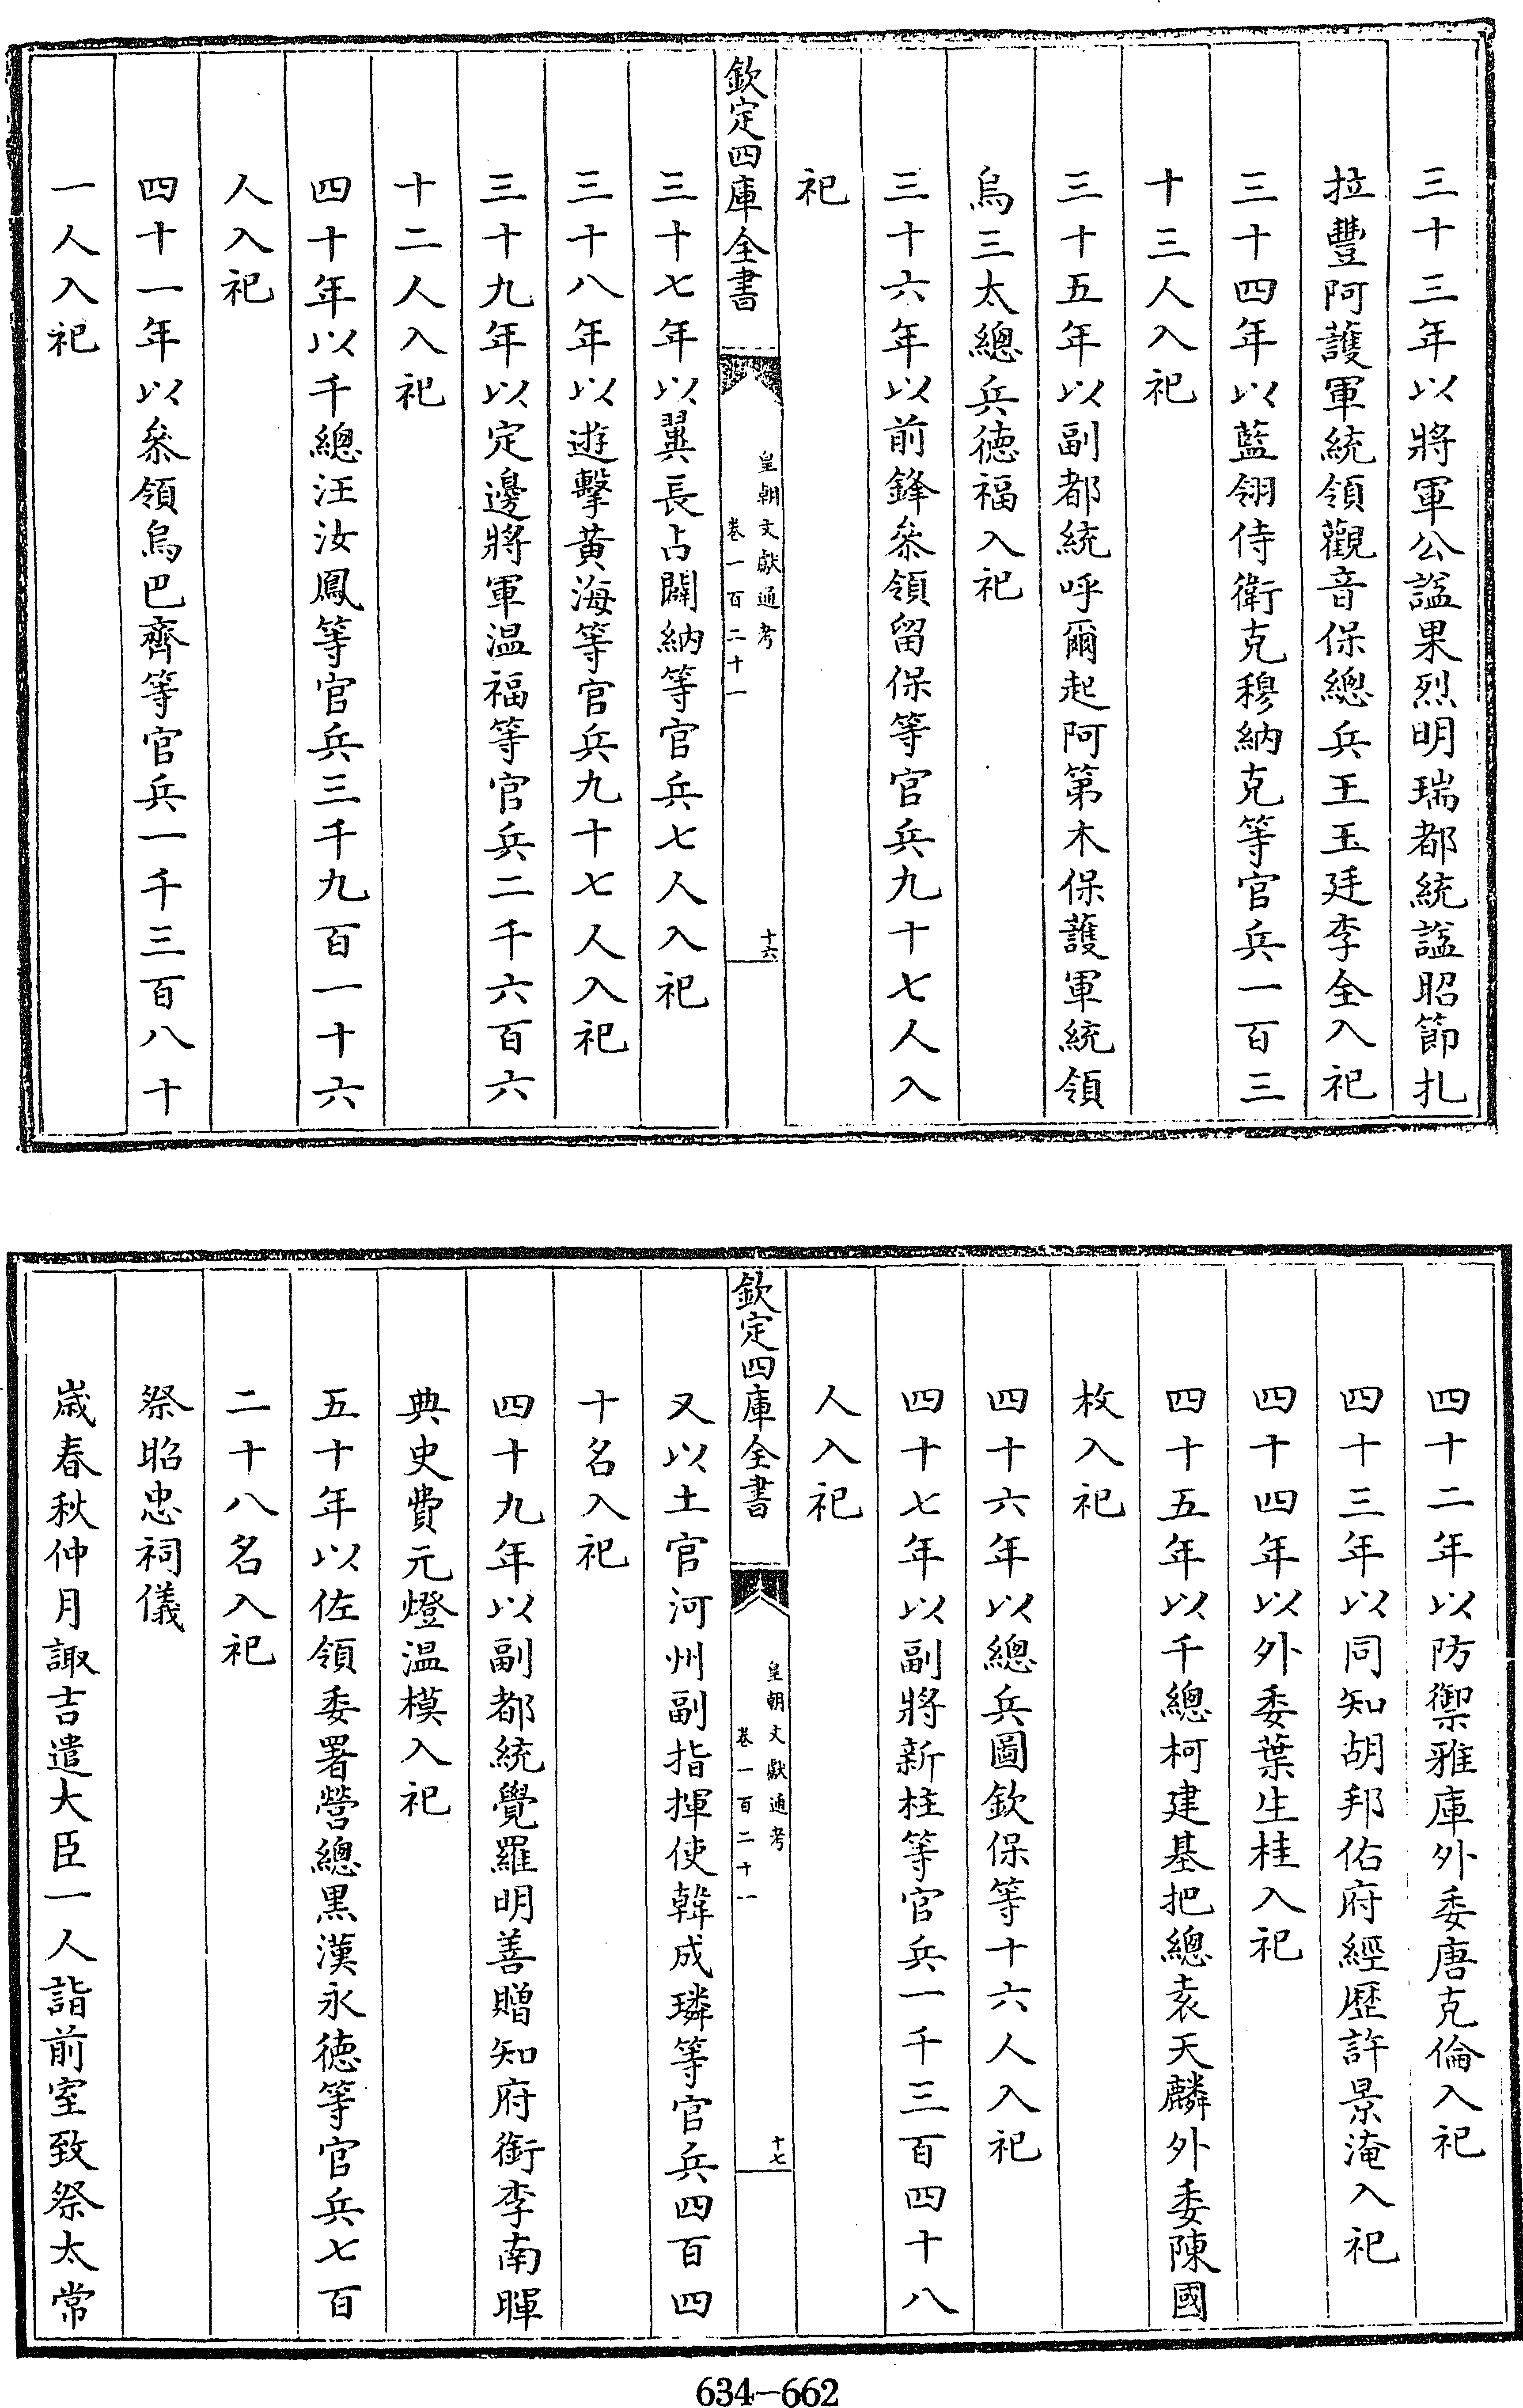 三十三年以將軍公諡果烈明瑞都統諡昭節扎
拉豐阿護軍統領觀音保總兵王玉廷李全入祀
三十四年以藍翎侍衛克穆納克等官兵一百三
十三人入祀
三十五年以副都統呼爾起阿第木保護軍統領
烏三太總兵德福入祀
三十六年以前鋒叅領留保等官兵九十七人入
祀
欽定四庫全書
皇朝文獻通考
卷一百二十一
十六
三十七年以翼長占闢納等官兵七人入祀
三十八年以遊擊黃海等官兵九十七人入祀
三十九年以定邊將軍温福等官兵二千六百六
十二人入祀
四十年以千總汪汝鳳等官兵三千九百一十六
人入祀
四十一年以叅領烏巴齊等官兵一千三百八十
一人入祀
四十二年以防禦雅庫外委唐克倫入祀
四十三年以同知胡邦佑府經歷許景淹入祀
四十四年以外委葉生桂入祀
四十五年以千總柯建基把總袁天麟外委陳國
枚入祀
四十六年以總兵圖欽保等十六人入祀
四十七年以副將新柱等官兵一千三百四十八
人入祀
欽定四庫全書
皇朝文獻通考
卷一百二十一
十七
又以土官河州副指揮使韓成璘等官兵四百四
十名入祀
四十九年以副都統覺羅明善贈知府銜李南暉
典史費元燈温模入祀
五十年以佐領委署營總黒漢永德等官兵七百
二十八名入祀
祭昭忠祠儀
歲春秋仲月諏吉遣大臣一人詣前室致祭太常
634-662